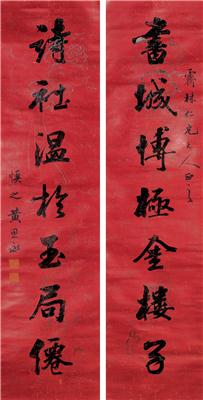 書城博極金樓子
詩社溫於玉局僊
霽林仁兄大人正之
慎之黃思永